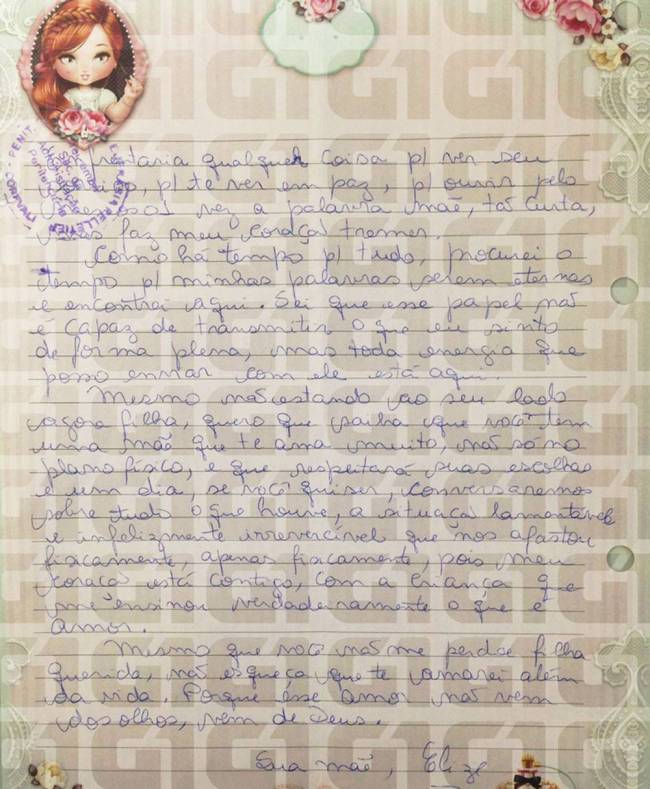 prestaria qualquer coisa p/ ver seu
p/ te ver em paz, p/ ouvir pela
vez a palavra mãe, tão curta,
mas faz meu coração tremer.
Como há tempo p/ tudo, procurei o
tempo p/ minhas palavras serem eternas
e encontrei aqui. Sei que esse papel não
é capaz de transmitir o que eu sinto
de forma plena, mas toda energia que
posso enviar com ele está aqui.
Mesmo não estando ao seu lado
agora filha, quero que saiba que você tem
uma mãe que te ama muito, não só no
plano físico, e que respeitará suas escolhas
e um dia, se você quiser, conversaremos
sobre tudo o que houve, a situação lamentável
e infelizmente irreversível que nos afastou
fisicamente, apenas fisicamente, pois meu
coração está contigo, com a criança que
me ensinou verdadeiramente o que é
amor.
Mesmo que você não me perdoe filha
querida, não esqueça que te amarei além
da vida. Porque esse amor não vem
dos olhos, vem de Deus.
Sua mãe, Elize
G1